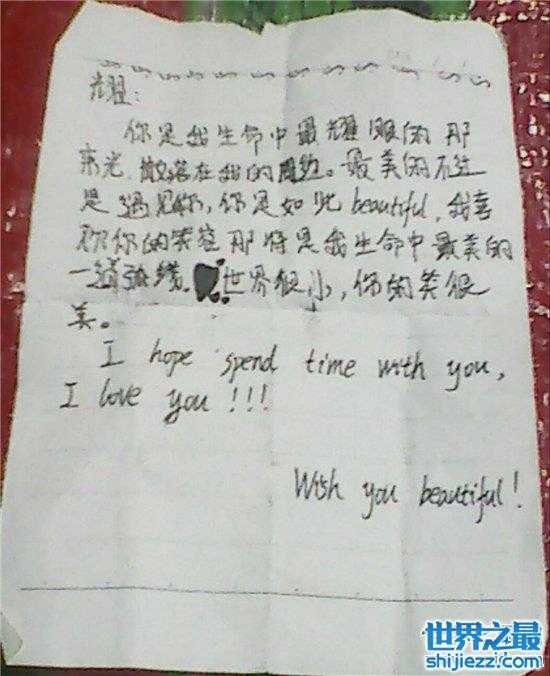 耀:
你是我生命中最耀眼的那
束光,散落在我的周边。最美的不过
是遇见你,你是如此 beautiful,我喜
欢你的笑容那将是我生命中最美的
一道弧线。世界很小,你的笑很
美。
I hope spend time with you,
I love you!!!
Wish you beautiful!
世界之最
shijiezz.com